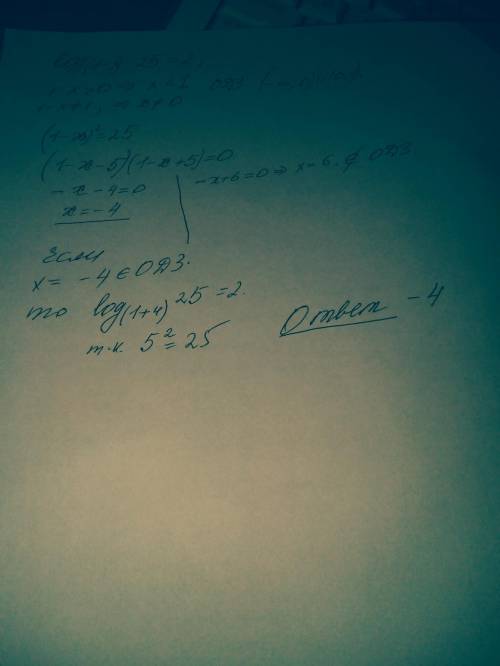 log(1-x) 25 = 2;
1-x>0 ⇒ x<1 ОДЗ (-∞;0)∪(0;1)
1-x≠1, ⇒ x≠0
(1-x)²=25
(1-x-5)(1-x+5)=0
-x-4=0 -x+6=0 ⇒ x=6. ∉ ОДЗ.
x=-4
Если
x= -4 ∈ ОДЗ.
то log(1+4) 25 = 2.
т.к. 5² = 25
Ответ -4